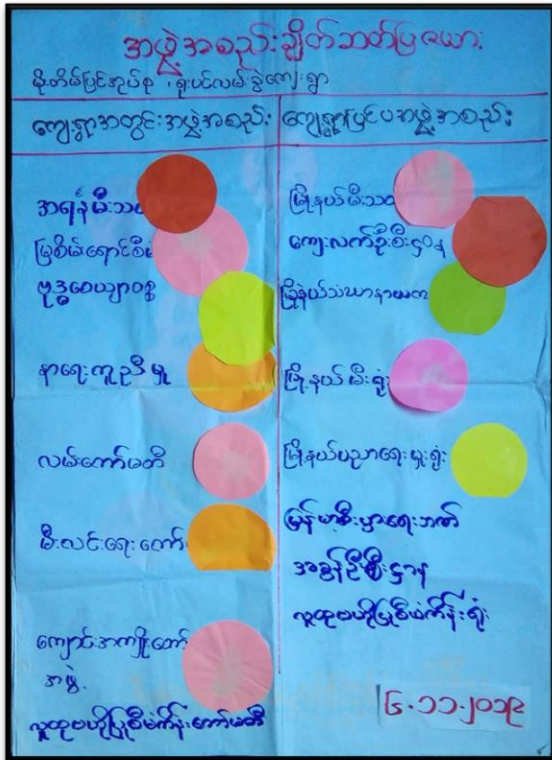 အဖွဲ့အစည်းချိတ်ဆက်ပြဇယား
မိုးတိမ်ပြင်အုပ်စု ၊ ရုံးပင်လမ်းခွဲကျေးရွာ
ကျေးရွာအတွင်းအဖွဲ့အစည်း
အရန်မီးသတ်
မြစိမ်းရောင်စီမံ
ဗုဒ္ဓဝေယျာဝစ္စ
နာရေးကူညီမှု
လမ်းကော်မတီ
မီးလင်းရေးကော်
ကျောင်းအကျိုးတော်
အဖွဲ့
လူထုဗဟိုပြုစီမံကိန်းကော်မတီ
ကျေးရွာပြင်ပအဖွဲ့အစည်း
မြို့နယ်မီးသတ်
ကျေးလက်ဦးစီးဌာန
မြို့နယ်သံဃာနာယက
မြို့နယ်မီးရုံး
မြို့နယ်ပညာရေးမှူးရုံး
မြန်မာ့စီးပွားရေးဘဏ်
အခွန်ဦးစီးဌာန
လူထုဗဟိုပြုစီမံကိန်းရုံး
၆.၁၁.၂၀၁၉